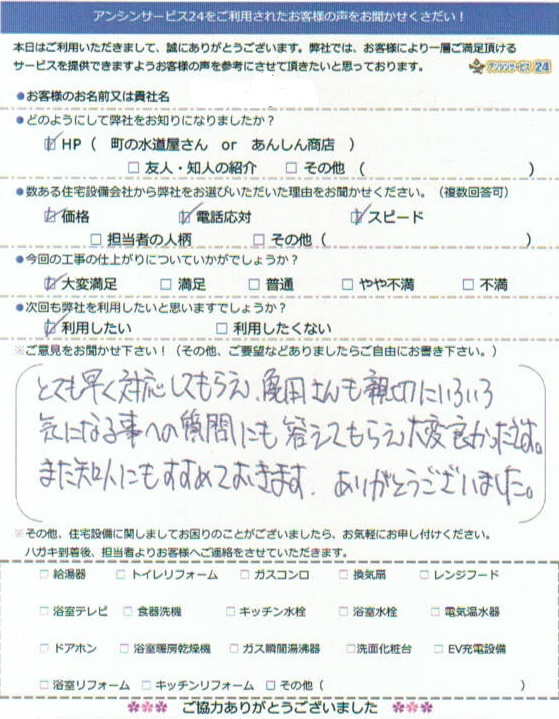 アンシンサービス24をご利用されたお客様の声をお聞かせください！
本日はご利用いただきまして、誠にありがとうございます。弊社では、お客様により一層ご満足頂ける
サービスを提供できますようお客様の声を参考にさせて頂きたいと思っております。 アンシンサービス24
●お客様のお名前又は貴社名
●どのようにして弊社をお知りになりましたか？
☑HP（ 町の水道屋さん or あんしん商店 ）
□友人・知人の紹介 □その他（ ）
●数ある住宅設備会社から弊社をお選びいただいた理由をお聞かせください。（複数回答可）
☑価格 ☑電話応対 ☑スピード
□担当者の人柄 □その他（ ）
●今回の工事の仕上がりについていかがでしょうか？
☑大変満足 □満足 □普通 □やや不満 □不満
●次回も弊社を利用したいと思いますでしょうか？
☑利用したい □利用したくない
※ご意見をお聞かせ下さい！（その他、ご要望などありましたらご自由にお書き下さい。）
とても早く対応してもらえ、亀田さんも親切にいろいろ
気になる事への質問にも答えてもらえ大変良かったです。
また知人にもすすめておきます。ありがとうございました。
※その他、住宅設備に関しましてお困りのことがございましたら、お気軽にお申し付けください。
ハガキ到着後、担当者よりお客様へご連絡をさせていただきます。
□給湯器 □トイレリフォーム □ガスコンロ □換気扇 □レンジフード
□浴室テレビ □食器洗機 □キッチン水栓 □浴室水栓 □電気温水器
□ドアホン □浴室暖房乾燥機 □ガス瞬間湯沸器 □洗面化粧台 □EV充電設備
□浴室リフォーム □キッチンリフォーム □その他（ ）
ご協力ありがとうございました